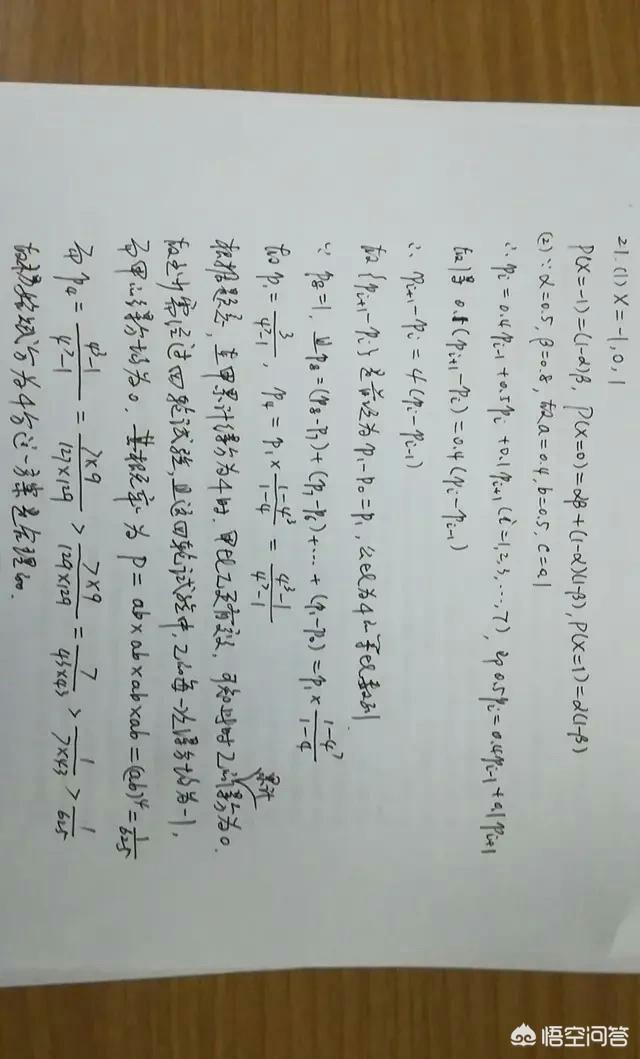 21.(1) X=-1,0,1
P(X=-1)=(1-α)β, P(X=0)=αβ+(1-α)(1-β), P(X=1)=α(1-β)
(2)∵α=0.5,β=0.8,故a=0.4,b=0.5,c=0.1
∴p_i=0.4p_{i-1}+0.5p_i+0.1p_{i+1}(i=1,2,3,…,7),即0.5p_i=0.4p_{i-1}+0.1p_{i+1}
故得0.1(p_{i+1}-p_i)=0.4(p_i-p_{i-1})
∴p_{i+1}-p_i=4(p_i-p_{i-1})
故{p_{i+1}-p_i}是首项为p_1-p_0=p_1,公比为4的等比数列
∵p_8=1,且p_8=(p_8-p_7)+(p_7-p_6)+…+(p_1-p_0)=p_1×\frac{1-4^7}{1-4}
故p_1=\frac{3}{4^7-1}, p_4=p_1×\frac{1-4^3}{1-4}=\frac{4^3-1}{4^7-1}
根据题意,当甲累计得分为4时,甲比乙更有效,可知此时乙的累计得分为0.
故至少需经过四轮试验,且这四轮试验中,乙的每一次得分均为-1,
而甲的得分均为0,其概率为P=ab×ab×ab×ab=(ab)^4=\frac{1}{625}
而p_4=\frac{4^3-1}{4^7-1}=\frac{7×9}{127×129}>\frac{7×9}{129×129}=\frac{7}{43×43}>\frac{1}{7×43}>\frac{1}{625}
故认为4分这一方案是合理的.
悟空问答